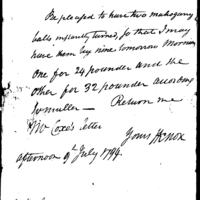 Be pleased to have two mahogany
balls instantly turned, so that I may
have them by nine tomorrow Morning
One for 24 pounder and the
other for 32 pounder according
to muller — Return me
Mr Coxe's letter
Yours HKnox
afternoon 9th July 1794.